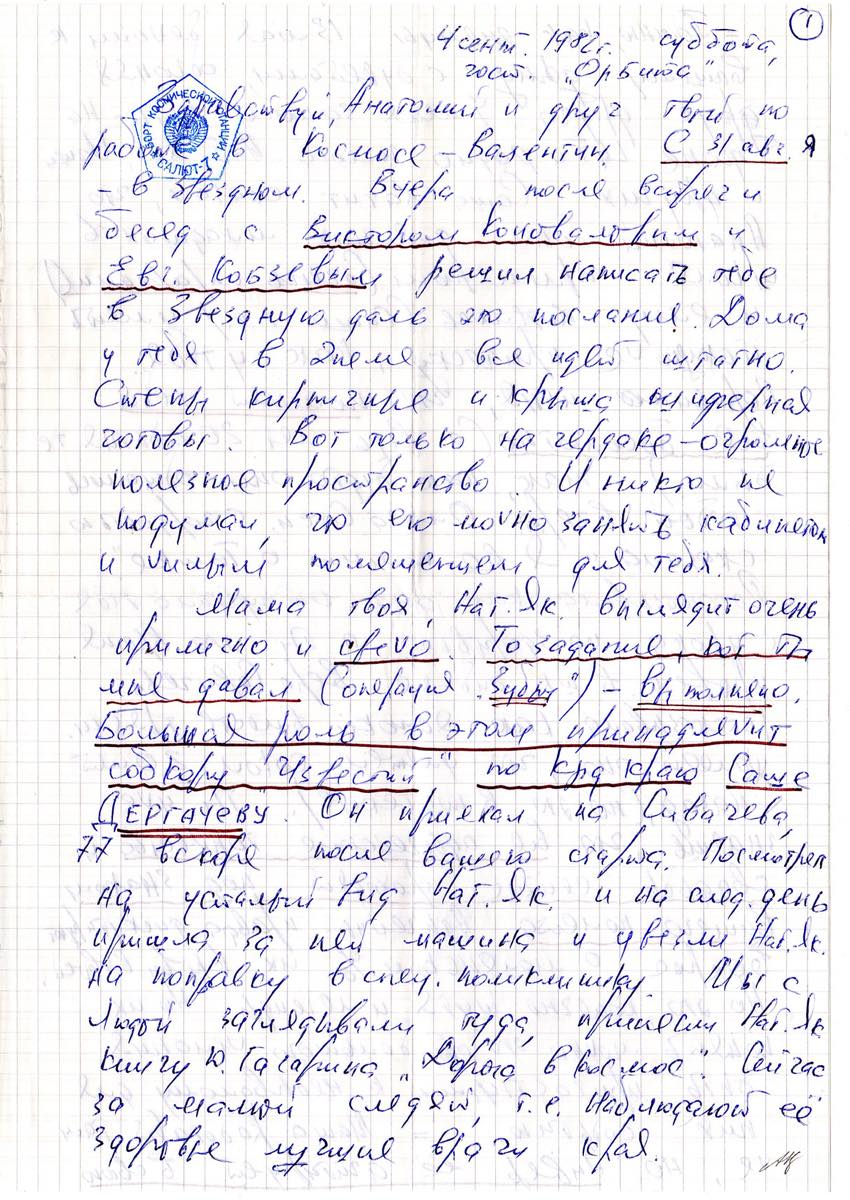 1
4 сент. 1982г. суббота,
гост. „Орбита"
БОРТ КОСМИЧЕСКОЙ СТАНЦИИ
САЛЮТ-7
Здравствуй, Анатолий и друг твой по
работе в Космосе – Валентин. С 31 авг. я
– в Звездном. Вчера после встреч и
бесед с Виктором Коноваловым и
Евг. Кобзевым решил написать тебе
в Звездную даль это послание. Дома
у тебя в Элеме все идет штатно.
Стены кирпичные и крыша шиферная
готовы. Вот только на чердаке – огромное
полезное пространство. И никто не
подумал, что его можно занять кабинетом
и жилым помещением для тебя.
Мама твоя, Нат. Як. выглядит очень
прилично и свежо. То задание, кот. ты
мне давал (операция „Зубры") – выполнено.
Большая роль в этом принадлежит
собкору „Известий" по Крд краю Саше
Дергачеву. Он приехал на Сивачева,
77 вскоре после вашего старта. Посмотрел
на усталый вид Нат. Як. и на след. день
пришла за ней машина и увезли Нат. Як.
на поправку в спец. поликлинику. Мы с
Людой заглядывали туда, принесли Нат. Як.
книгу Ю. Гагарина „Дорога в космос". Сейчас
за мамой следят, т.е. наблюдают её
здоровье лучшие врачи края.